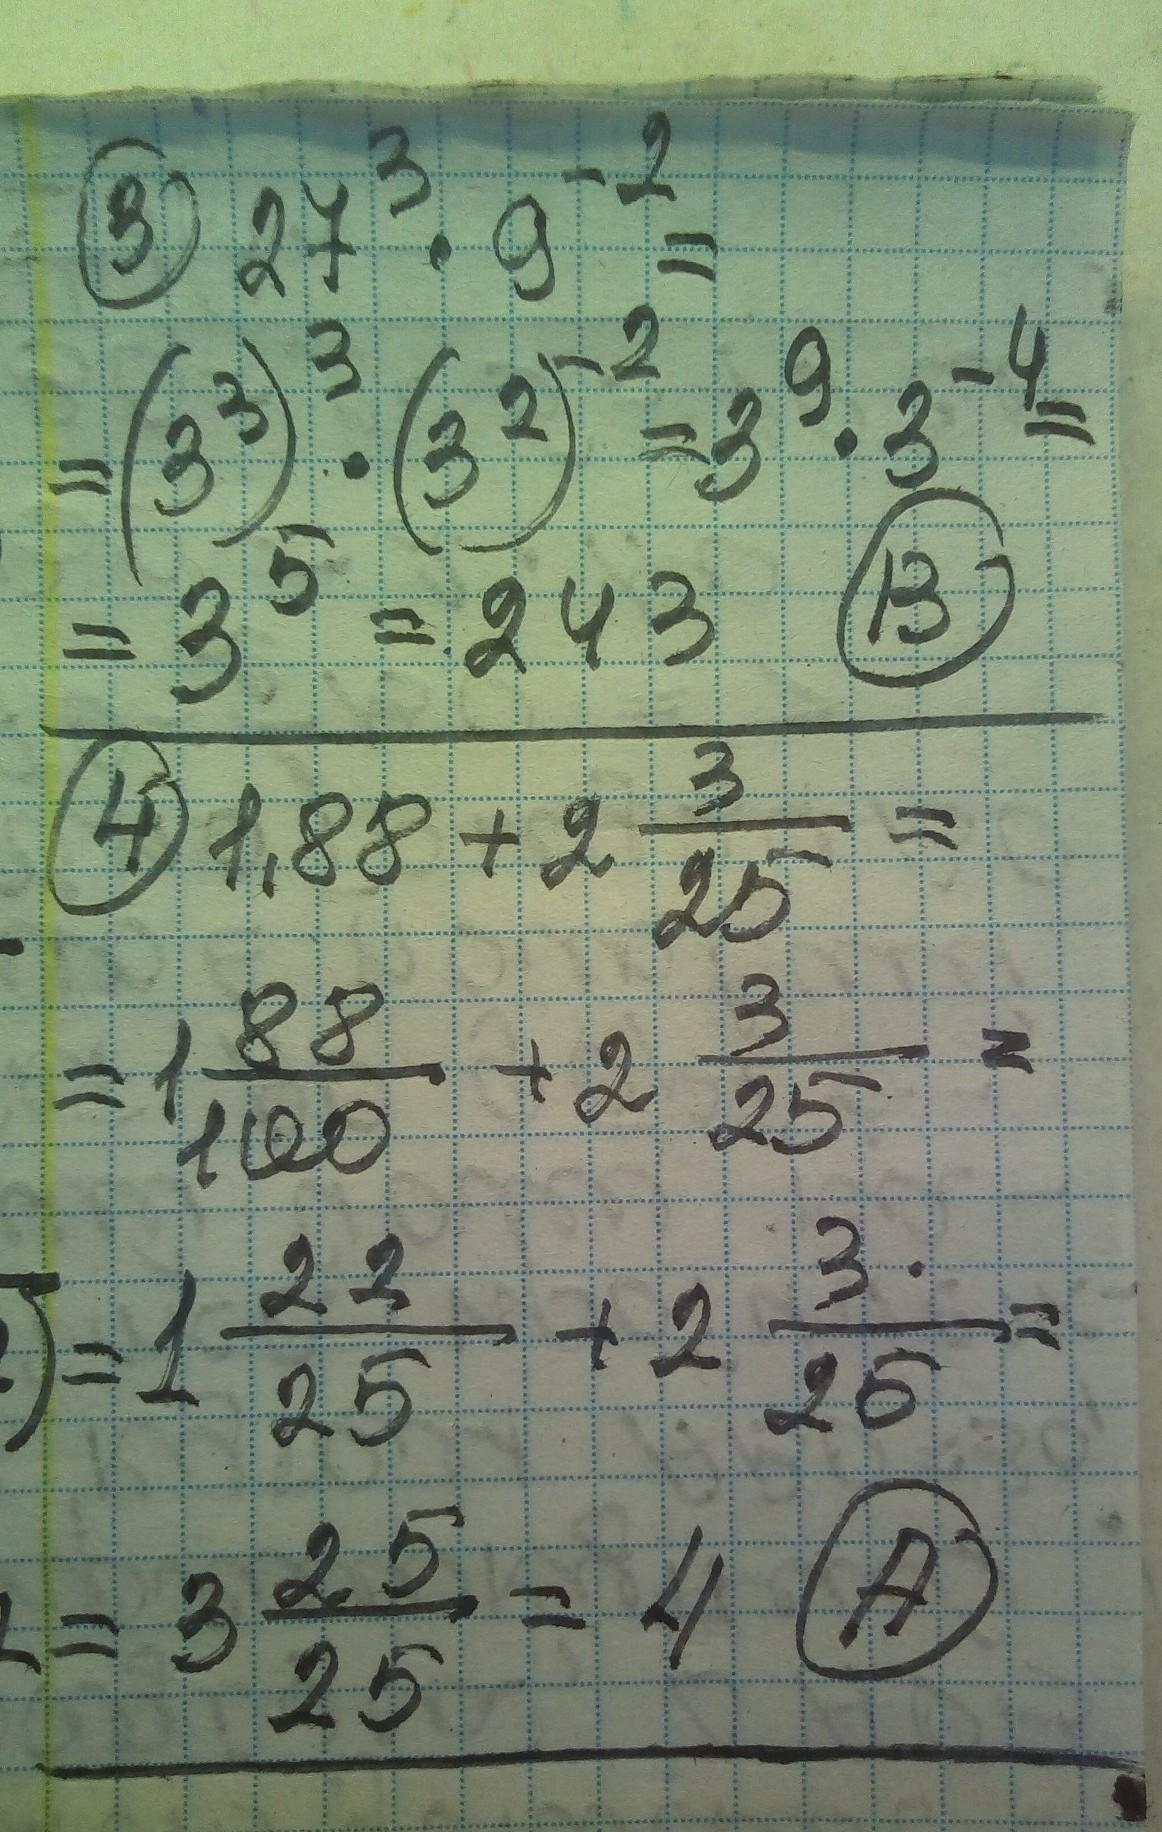 ③ 27³ · 9⁻² =
= (3³)³ · (3²)⁻² = 3⁹ · 3⁻⁴ =
= 3⁵ = 243 Ⓑ
④ 1,88 + 2 3/25 =
= 1 88/100 + 2 3/25 =
= 1 22/25 + 2 3/25 =
= 3 25/25 = 4 Ⓐ